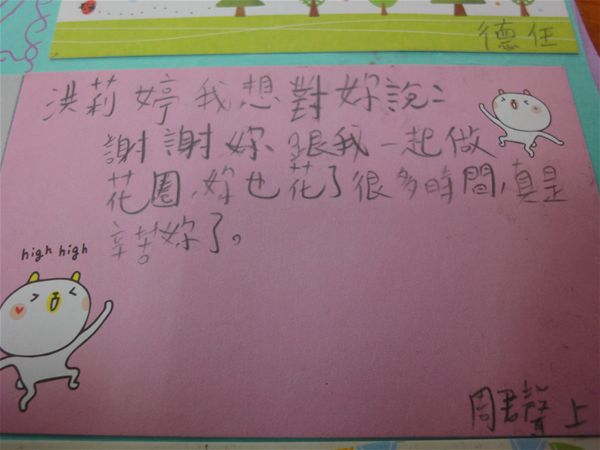 德任
洪莉婷我想對妳說:
謝謝妳跟我一起做
花圈,妳也花了很多時間,真是
辛苦妳了。
high high
周君聲上